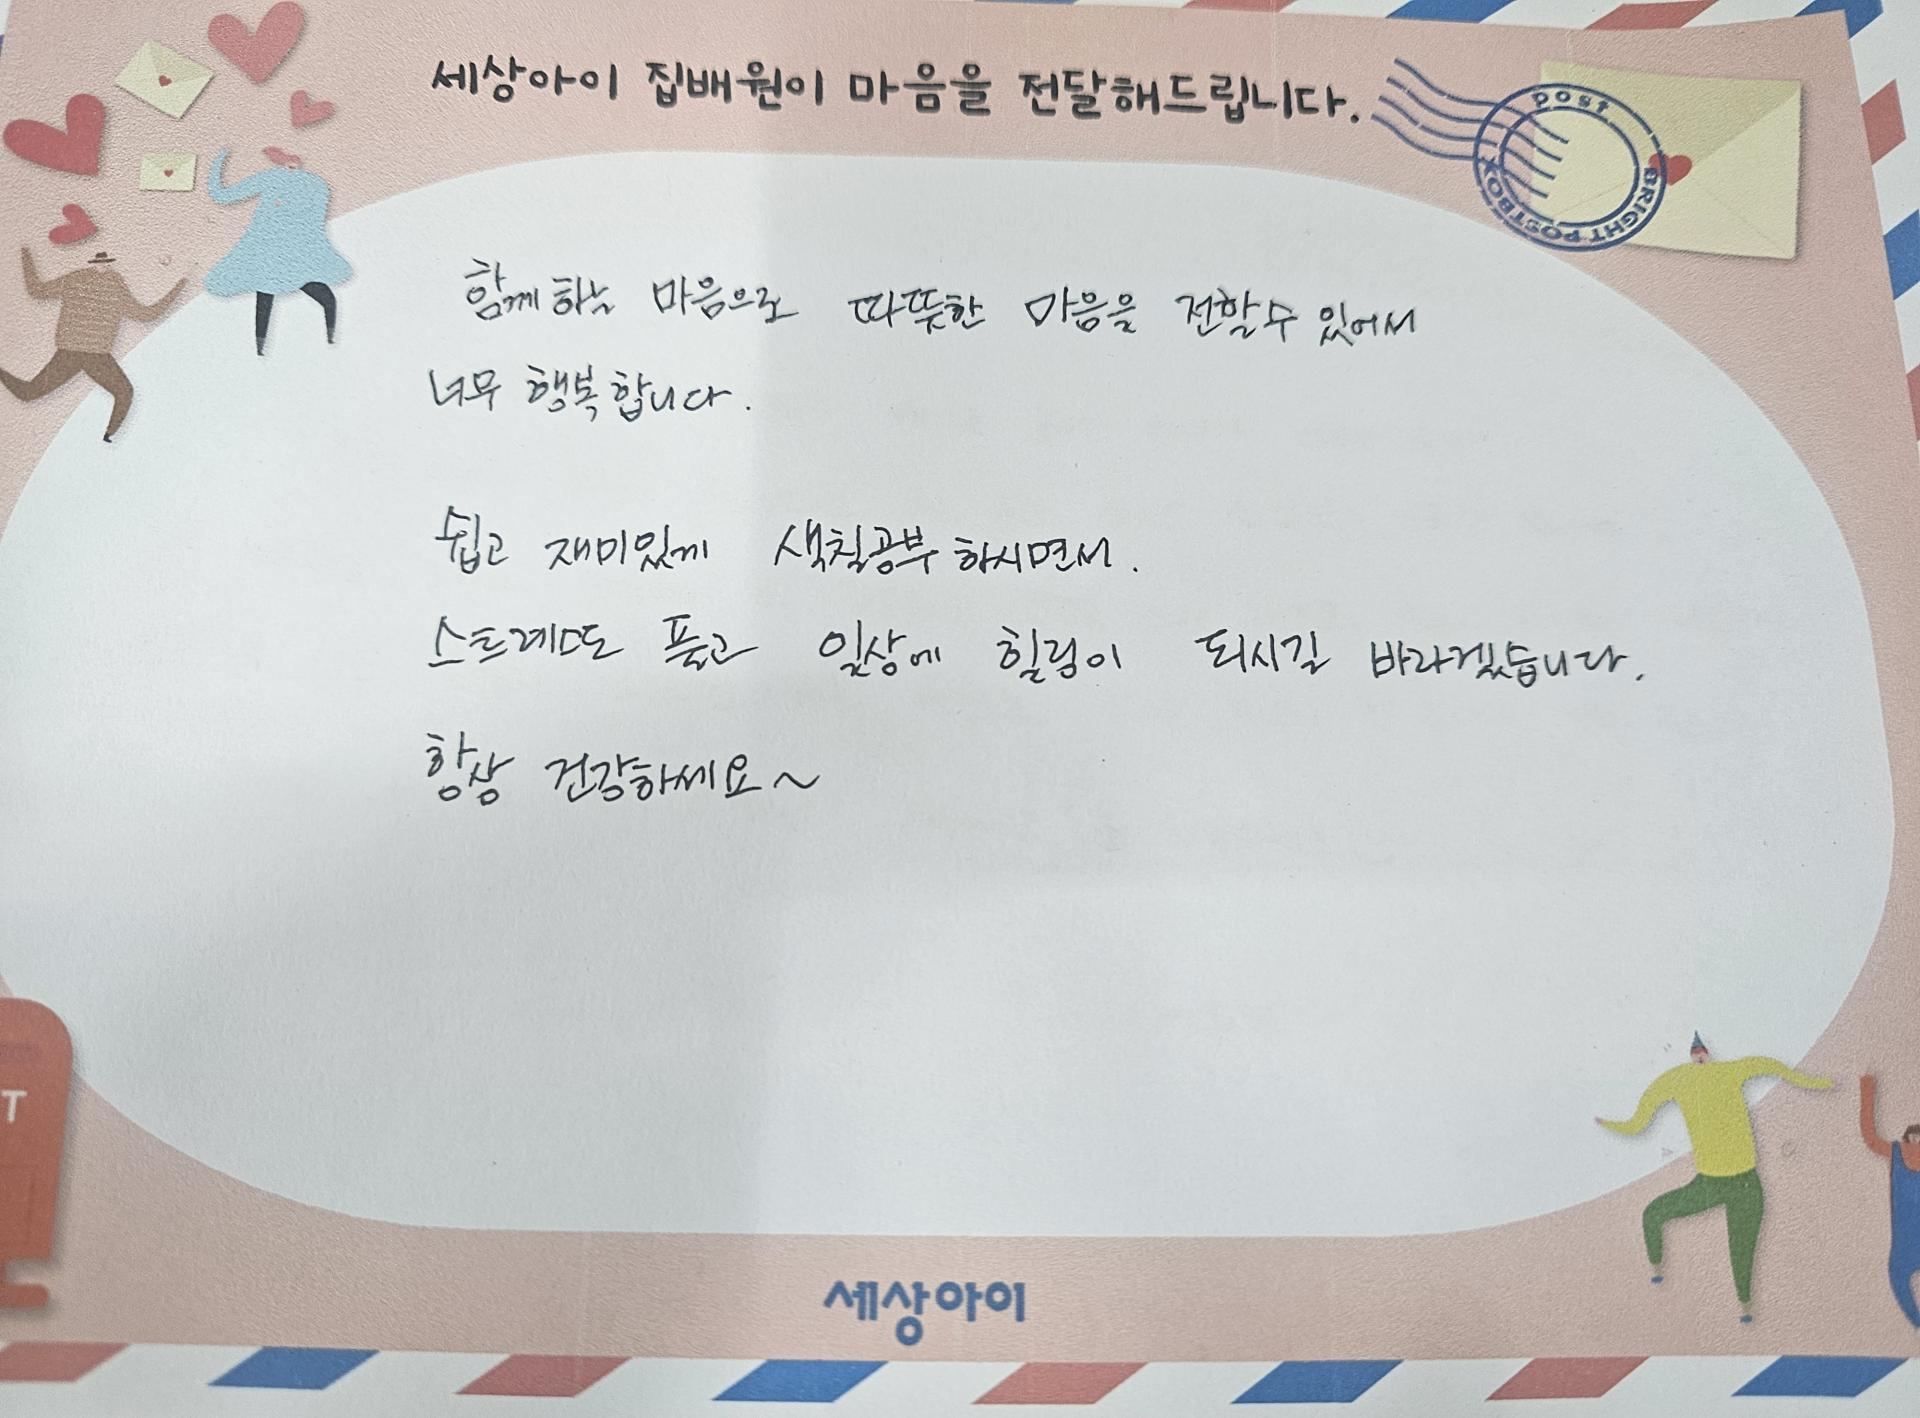 세상아이 집배원이 마음을 전달해드립니다.
post
BRIGHT POSTBOX
함께하는 마음으로 따뜻한 마음을 전할수 있어서
너무 행복합니다.
쉽고 재미있게 색칠공부 하시면서.
스트레스도 풀고 일상에 힐링이 되시길 바라겠습니다.
항상 건강하세요~
T
세상아이